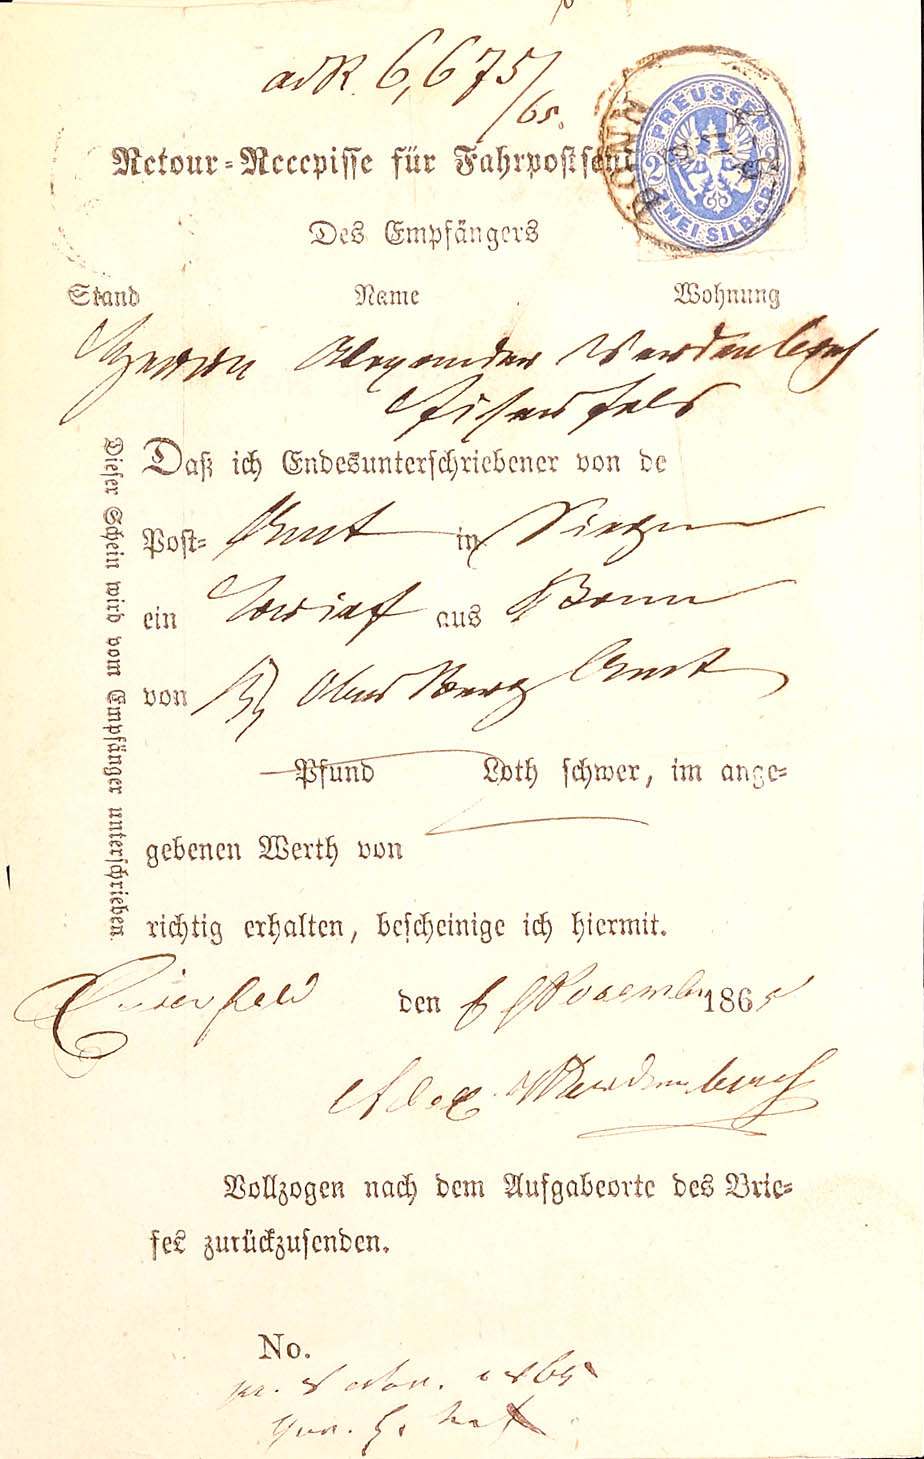 adR. 6,675/65.
Retour-Recepisse für Fahrpostsend
PREUSSEN
2 2
ZWEI SILB.GR.
BONN
Des Empfängers
Stand Name Wohnung
Herrn Alexander Werdenbach
Eiserfeld
Daß ich Endesunterschriebener von de
Post- Amt in Siegen
ein Brief aus Bonn
von Ober Berg Amt
Pfund Loth schwer, im ange-
gebenen Werth von
richtig erhalten, bescheinige ich hiermit.
Eiserfeld den 6 November 1865
Alex. Werdenbach
Vollzogen nach dem Aufgabeorte des Brie-
fes zurückzusenden.
No.
pr. 8 Nov. 1865
Dieser Schein wird vom Empfänger unterschrieben.